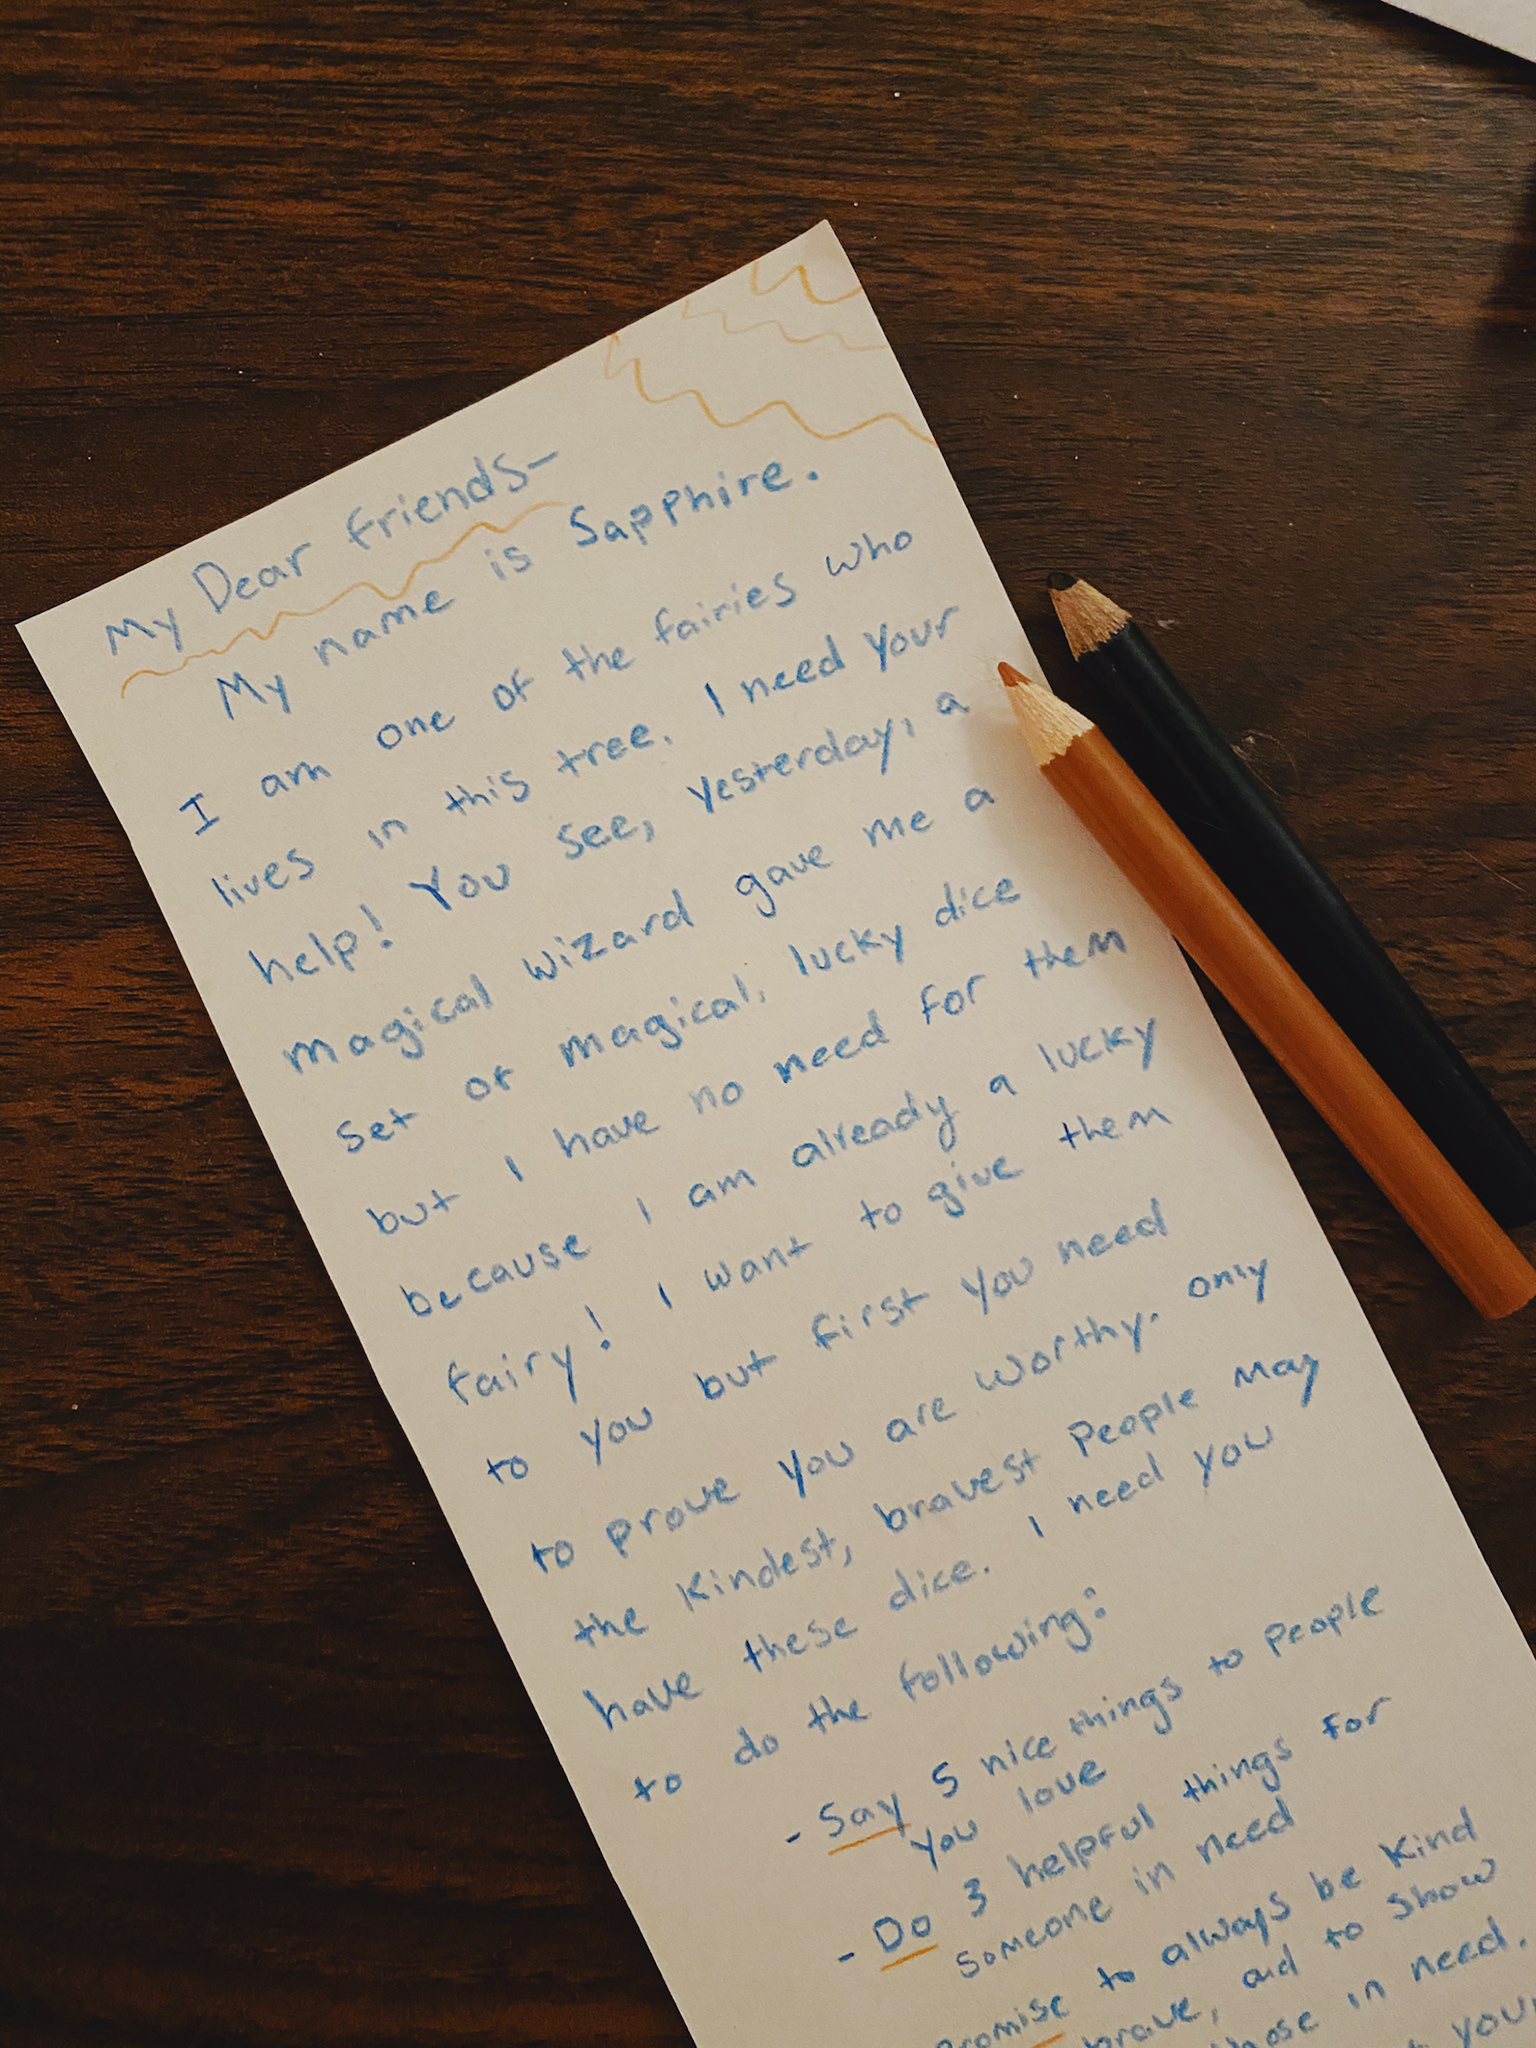 My Dear friends-
My name is Sapphire.
I am one of the fairies who
lives in this tree. I need your
help! You see, yesterday, a
magical wizard gave me a
set of magical, lucky dice
but I have no need for them
because I am already a lucky
fairy! I want to give them
to you but first you need
to prove you are worthy. only
the kindest, bravest people may
have these dice. I need you
to do the following:
- Say 5 nice things to people
you love
- Do 3 helpful things for
someone in need
promise to always be kind
brave, and to show
those in need.
your